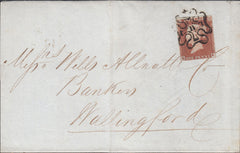 Messrs Wells Allnatt Co
Bankers
Wallingford